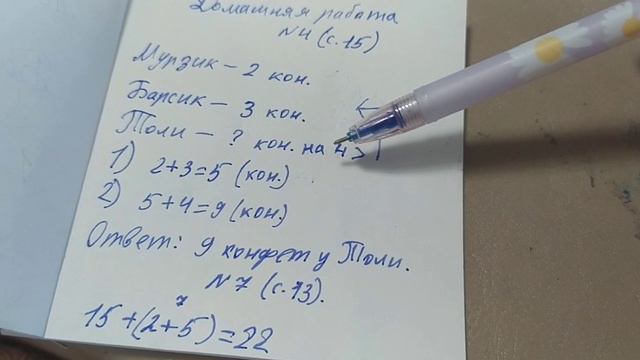 Домашняя работа
N4 (с. 15)
Мурзик – 2 кон.
Барсик – 3 кон.
Толи – ? кон. на 4 >
1) 2+3=5 (кон.)
2) 5+4=9 (кон.)
Ответ: 9 конфет у Толи.
N 7 (с. 13).
7
15+(2+5)=22